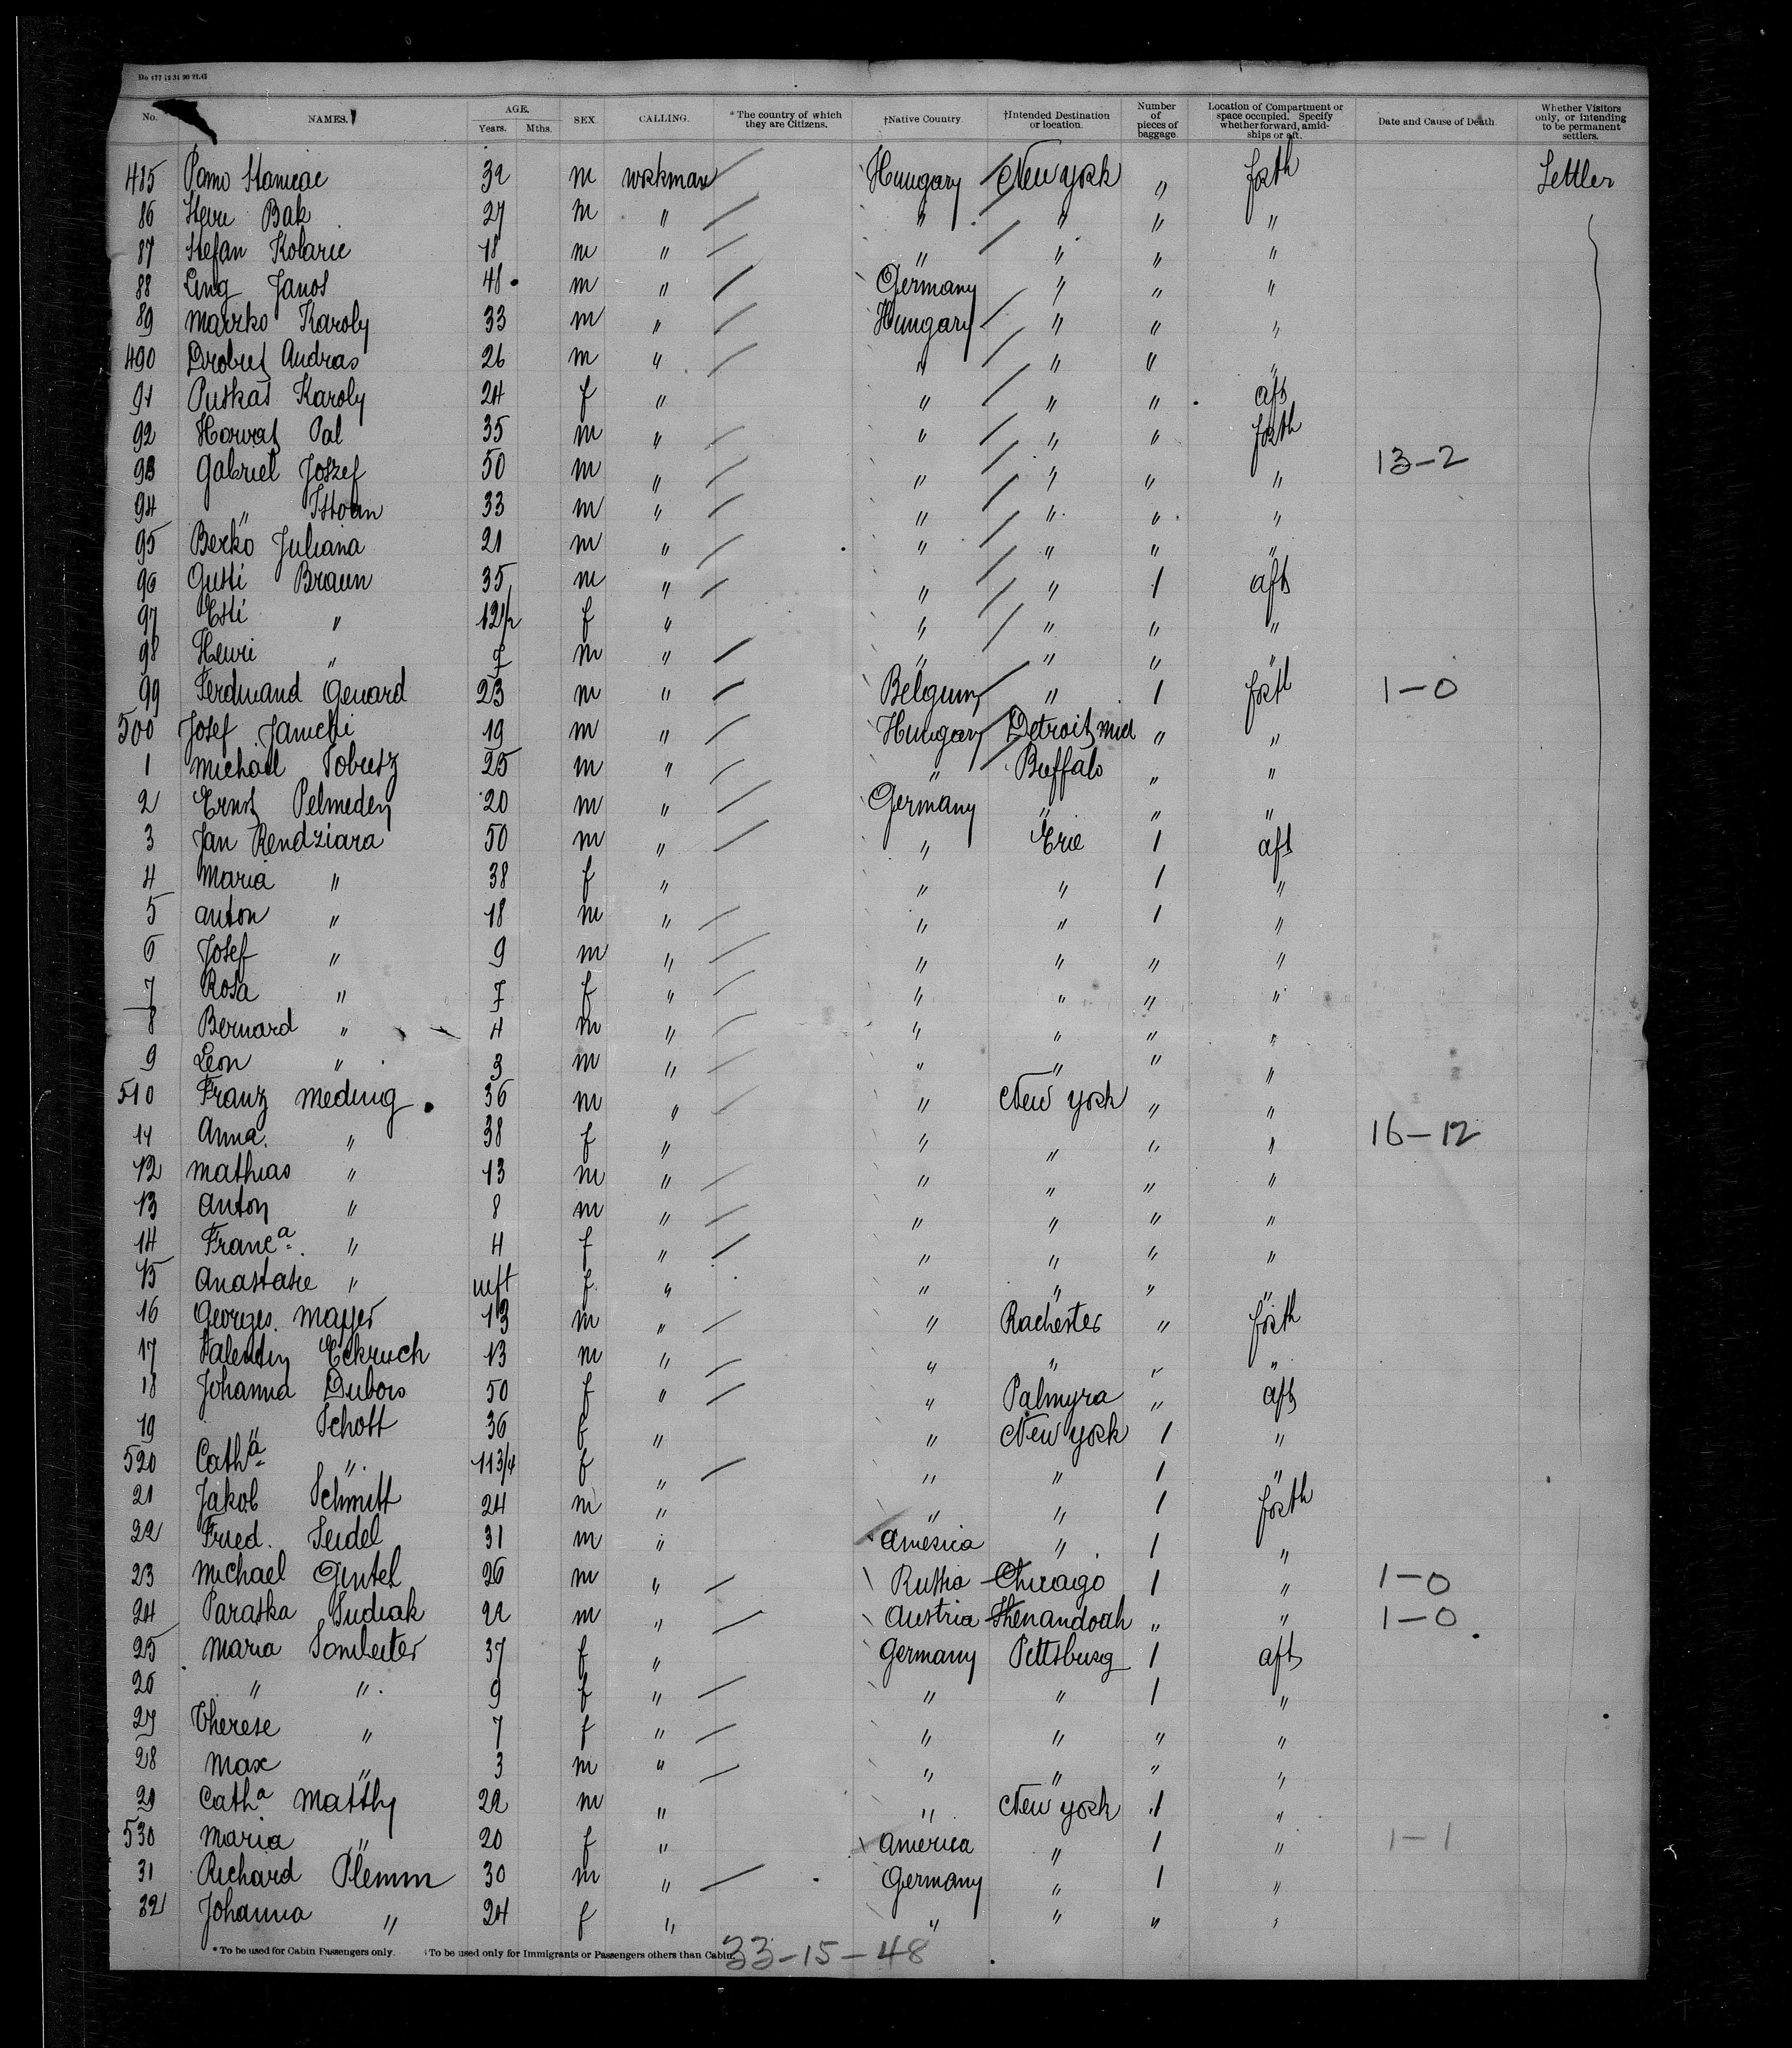 Do 477 12 31 90 21.G
No. NAMES. AGE. Years. Mths. SEX CALLING. *The country of which they are Citizens. †Native Country. †Intended Destination or location. Number of pieces of baggage. Location of Compartment or space occupied. Specify whether forward, amidships or aft. Date and Cause of Death. Whether Visitors only, or intending to be permanent settlers.
485 32 m workman Hungary New york " forth Settler
86 Bak 27 m " " " " "
87 Stefan Kolaric 18 m " " " " "
88 Leng Janos 48 m " Germany " " "
89 Marzko Karoly 33 m " Hungary " " "
490 Andras 26 m " " " " "
91 Puskas Karoly 24 f " " " " aft
92 Horvat Pal 35 m " " " " forth
93 Gabriel Joszef 50 m " " " " " 13-2
94 " Istvan 33 m " " " " "
95 Berko Juliana 21 m " " " " "
96 Gusti Braun 35 m " " " 1 aft
97 Esti " 12 1/2 f " " " " "
98 Henri " 7 m " " " " "
99 Ferdinand Genard 23 m " Belgium " 1 forth 1-0
500 Josef Janicki 19 m " Hungary Detroit Mid " "
1 Michael 25 m " " Buffalo " "
2 Ernst Pelmeden 20 m " Germany " " "
3 Jan Rendziara 50 m " " Erie 1 aft
4 Maria " 38 f " " " 1 "
5 Anton " 18 m " " " 1 "
6 Josef " 9 m " " " " "
7 Rosa " 7 f " " " " "
8 Bernard " 4 m " " " " "
9 Leon " 3 m " " " " "
510 Franz Meding 36 m " " New york " "
11 Anna " 38 f " " " " " 16-12
12 Mathias " 13 m " " " " "
13 Anton " 8 m " " " " "
14 Franca " 4 f " " " " "
15 Anastasie " f " " " " "
16 Georges Mayer 13 m " " Rachester " forth
17 Valentin 13 m " " " " "
18 Johanna Dubois 50 f " " Palmyra " aft
19 " Schott 36 f " " New york 1 "
520 Catha " 11 3/4 f " " " 1 "
21 Jakob Schmitt 24 m " " " 1 forth
22 Fried. Seidel 31 m " America " 1 "
23 Michael Gintel 26 m " Russia Chicago 1 " 1-0
24 Paraska Sudiak 22 m " Austria Shenandoah " " 1-0
25 Maria Sombeiter 37 f " Germany Pittsburg 1 aft
26 " " 9 f " " " 1 "
27 Therese " 7 f " " " " "
28 Max " 3 m " " " " "
29 Catha Matthy 22 m " " New york 1 "
530 Maria " 20 f " America " 1 " 1-1
31 Richard Plemm 30 m " Germany " 1 "
32 Johanna " 24 f " " " " "
*To be used for Cabin Passengers only. †To be used only for Immigrants or Passengers others than Cabin.
33-15-48